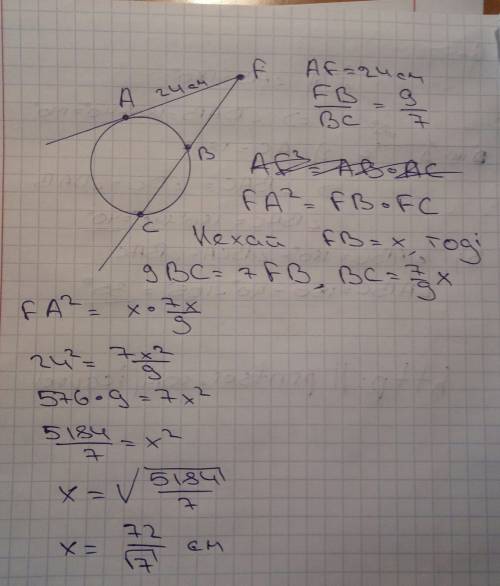 F
24 см
A
B
C
AF = 24 см
FB/BC = 9/7
AF² = AB • AC
FA² = FB • FC
Нехай FB = x, тоді
9 BC = 7 FB, BC = 7/9 x
FA² = x • 7x/9
24² = 7x²/9
576 • 9 = 7x²
5184/7 = x²
x = √5184/7
x = 72/√7 см